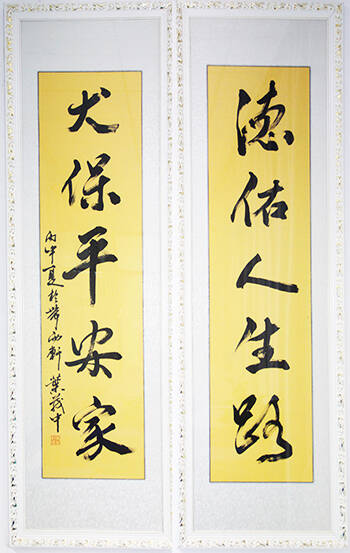 德佑人生路
犬保平安家
丙申夏於軒 葉茂中